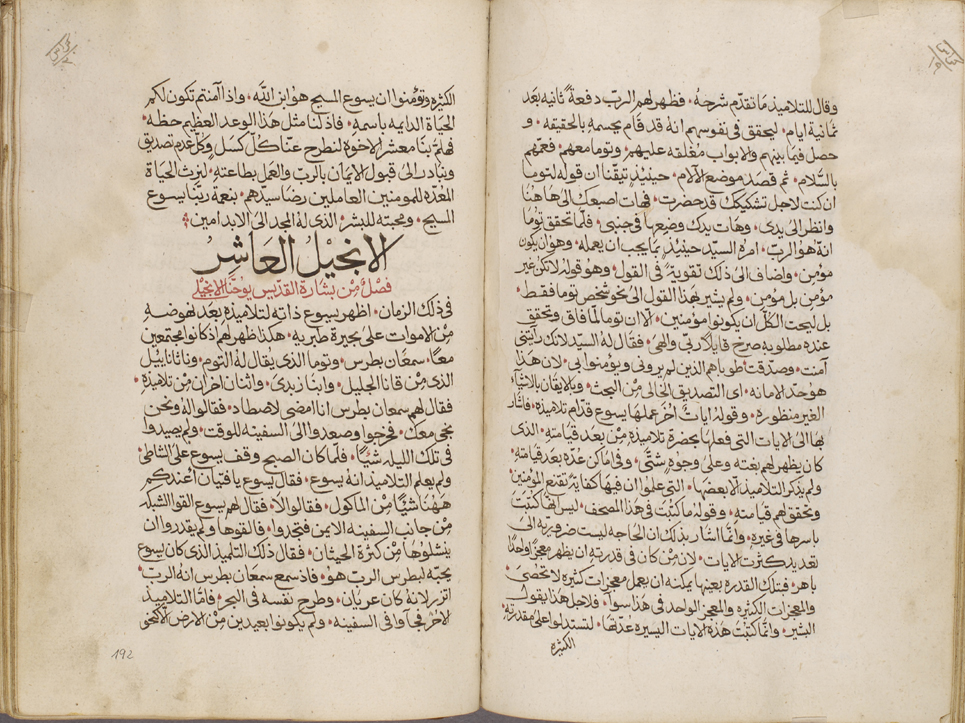 وقال للتلاميذ ما تقدّم شرحهُ • فظهر لهم الربّ دفعةً ثانيه بعد
ثمانية ايام • ليحقق في نفوسهم انهُ قد قام بجسمهِ بالحقيقه • و
حصل فيما بينهم والابواب مُغلقه عليهم • وتوما معهم • فعمّهم
بالسّلام • ثم قصد موضع الآلام • حينيذٍ تيقّنا ان قولهُ لتوما
ان كنت لاجل تشكيكك قد حضرت • فهات اصبعك الى هاهُنا
وانظر الى يدي • وهات يدك وضعها في جنبي • فلمّا تحقق توما
انهُ هو الربّ • امرهُ السيّد حينيذٍ بما يجب ان يعمله • وهو ان يكون
مؤمن • واضاف الى ذلك تقويةً في القول • وهو قوله لا تكن غير
مؤمن بل مؤمن • ولم يشير بهذا القول الى نحو شخص توما فقط •
بل ليحث الكلّ ان يكونوا مؤمنين • الّا ان توما لمّا فاق وتحقق
عنده مطلوبه صرخ قايلًا ربّي والهي • فقال لهُ السيّد لانك رأيتني
آمنت • وصدّقت طوباهم الذين لم يروني ويؤمنوا بي • لان هذا
هو حدّ الامانه • اي التصديق الخالي من البحث • وبالايقان بالاشيآء
الغير منظوره • وقوله ايات أُخَر عملها يسوع قدّام تلاميذه • فاشار
بها الى الايات التي فعلها بحضرة تلاميذهِ من بعد قيامتهِ • الذي
كان يظهر لهم بغته وعلى وجوهٍ شتّى • وفي اماكن عدّه بعد قيامتهِ
ولم يذكر التلاميذ الّا بعضها • التي علموا ان فيها كفايه تقنع المؤمنين
وتحقق لهم قيامتهِ • وقوله ما كُتبَت في هذا المصحف • ليس انها كُتبَت
باسرها في غيرهِ • وانّما اشار بذلك ان الحاجه ليست ضروريه الى
تعديد كثرت الايات • لان من كان في قدرتهِ ان يظهر معجزًا واحدًا
باهر • فبتلك القدره بعينها يمكنه ان يعمل معجزات كثيره لا تحصى
والمعجزات الكثيره والمعجز الواحد في هذا سوآء • فلاجل هذا يقول
البشير • وانّما كتبَت هذه الايات اليسيره عدّتها • لتستدلّوا على مقدرته
الكثيره
الكثيره وتؤمنوا ان يسوع المسيح هو ابن الله • واذا آمنتم تكون لكم
الحياة الدايمه باسمهِ • فاذ لنا مثل هذا الوعد العظيم حظّه •
فهلمّ بنا معشر الاخوه لنطرح عنّا كلّ كسل وكلّ عدم تصديق
ونبادر الى قبول الايمان بالرب والعمل بطاعتهِ • لنرث الحياة
المُعدّه للمومنين العاملين رضا سيّدهم • بنعمة ربّنا يسوع
المسيح • ومحبته للبشر الذي له المجد الى الابد امين
الانجيل العاشر
فصلٌ من بشارة القديس يوحنّا الانجيلي
في ذلك الزمان • اظهر يسوع ذاته لتلاميذهِ بعد نهوضهِ
من الاموات على بحيرة طبريه • هكذا ظهر لهم اذ كانوا مجتمعين
معًا • سمعان بطرس • وتوما الذي يقال له التوم • وناثانييل
الذي من قانا الجليل • وابنا زبدي • واثنان اخران من تلاميذهِ •
فقال لهم سمعان بطرس انا امضي لاصطاد • فقالوا لهُ ونحن
نجي معك • فخرجوا وصعدوا الى السفينه للوقت • ولم يصيدوا
في تلك الليله شيًا • فلمّا كان الصبح وقف يسوع على الشاطي •
ولم يعلم التلاميذ انه يسوع • فقال يسوع يا فتيان أعندكم
ههنا شيًا من المأكول • فقالوا لا • فقال لهم يسوع القوا الشبكه
من جانب السفينه الايمن فتجدوا • فالقوها ولم يقدروا ان
ينشلوها من كثرة الحيتان • فقال ذلك التلميذ الذي كان يسوع
يحبّه لبطرس الرب هو • فاذ سمع سمعان بطرس انه الربّ •
اتزر لانهُ كان عريان • وطرح نفسه في البحر • فامّا التلاميذ
الاخر فجآوا في السفينه • ولم يكونوا بعيدين من الارض
192